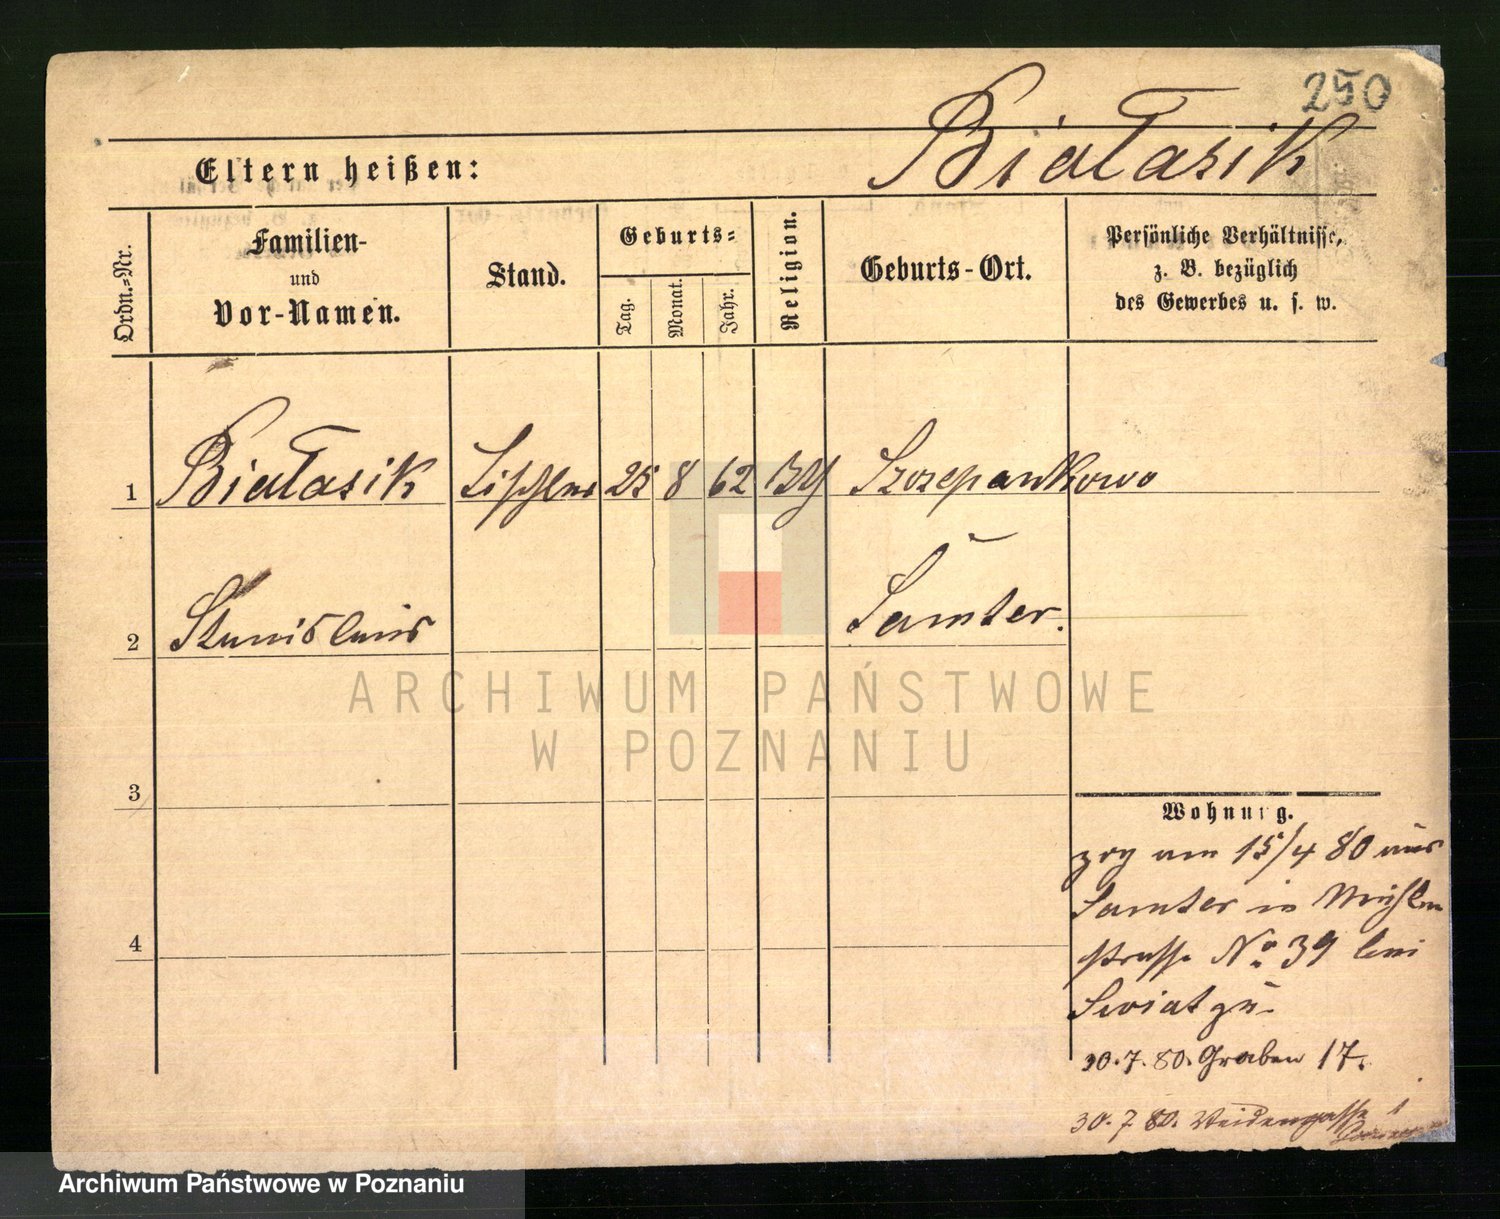 250
Białasik
Eltern heißen:
Ordn.-Nr.
Familien-
und
Vor-Namen.
Stand.
Geburts-
Tag.
Monat.
Jahr.
Religion.
Geburts-Ort.
Persönliche Verhältnisse,
z. B. bezüglich
des Gewerbes u. s. w.
1 Białasik Tischler 25 8 62 Szczepankowo
2 Stanislaus Samter.
3
4
ARCHIWUM PAŃSTWOWE
W POZNANIU
Wohnung.
zog am 15/4 80 aus
Samter in Mühlen
strasse No 39 bei
Swiat zu.
30.7.80. Graben 17.
30.7.80. Weidengasse 1
Archiwum Państwowe w Poznaniu